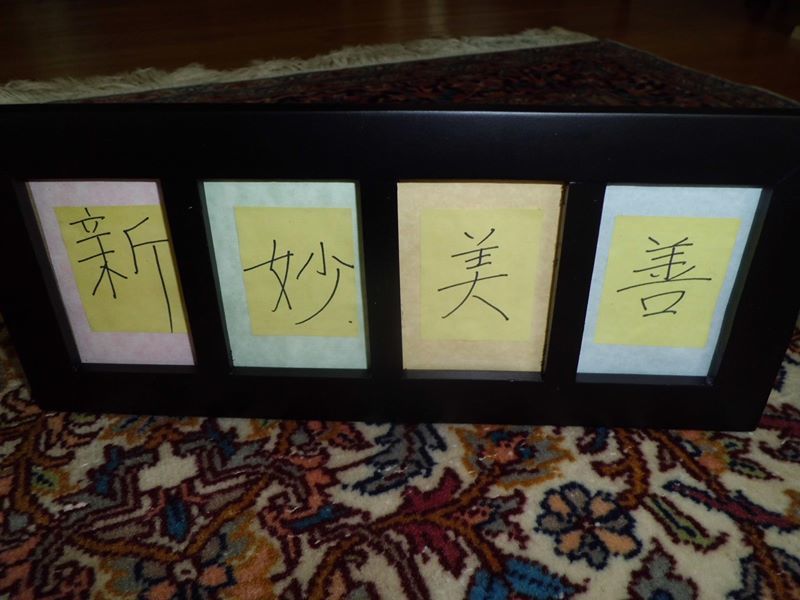 新 妙 美 善